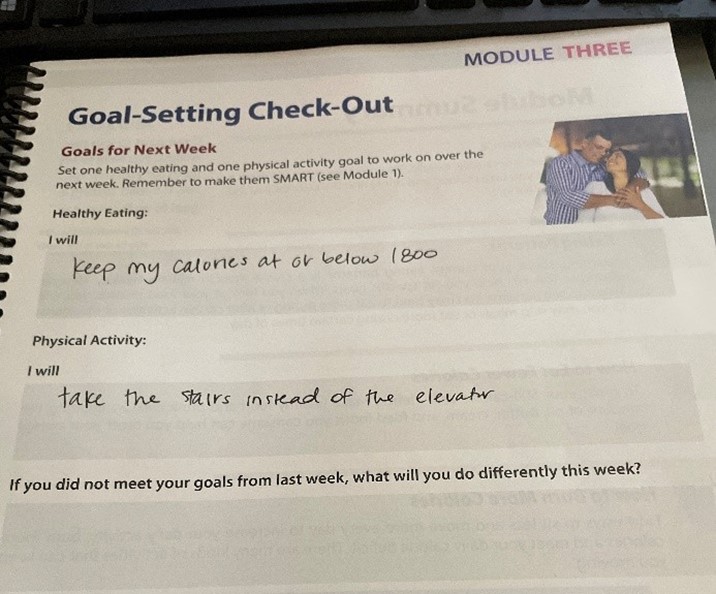 MODULE THREE
Goal-Setting Check-Out
Goals for Next Week
Set one healthy eating and one physical activity goal to work on over the
next week. Remember to make them SMART (see Module 1).
Healthy Eating:
I will
keep my calories at or below 1800
Physical Activity:
I will
take the stairs instead of the elevator
If you did not meet your goals from last week, what will you do differently this week?